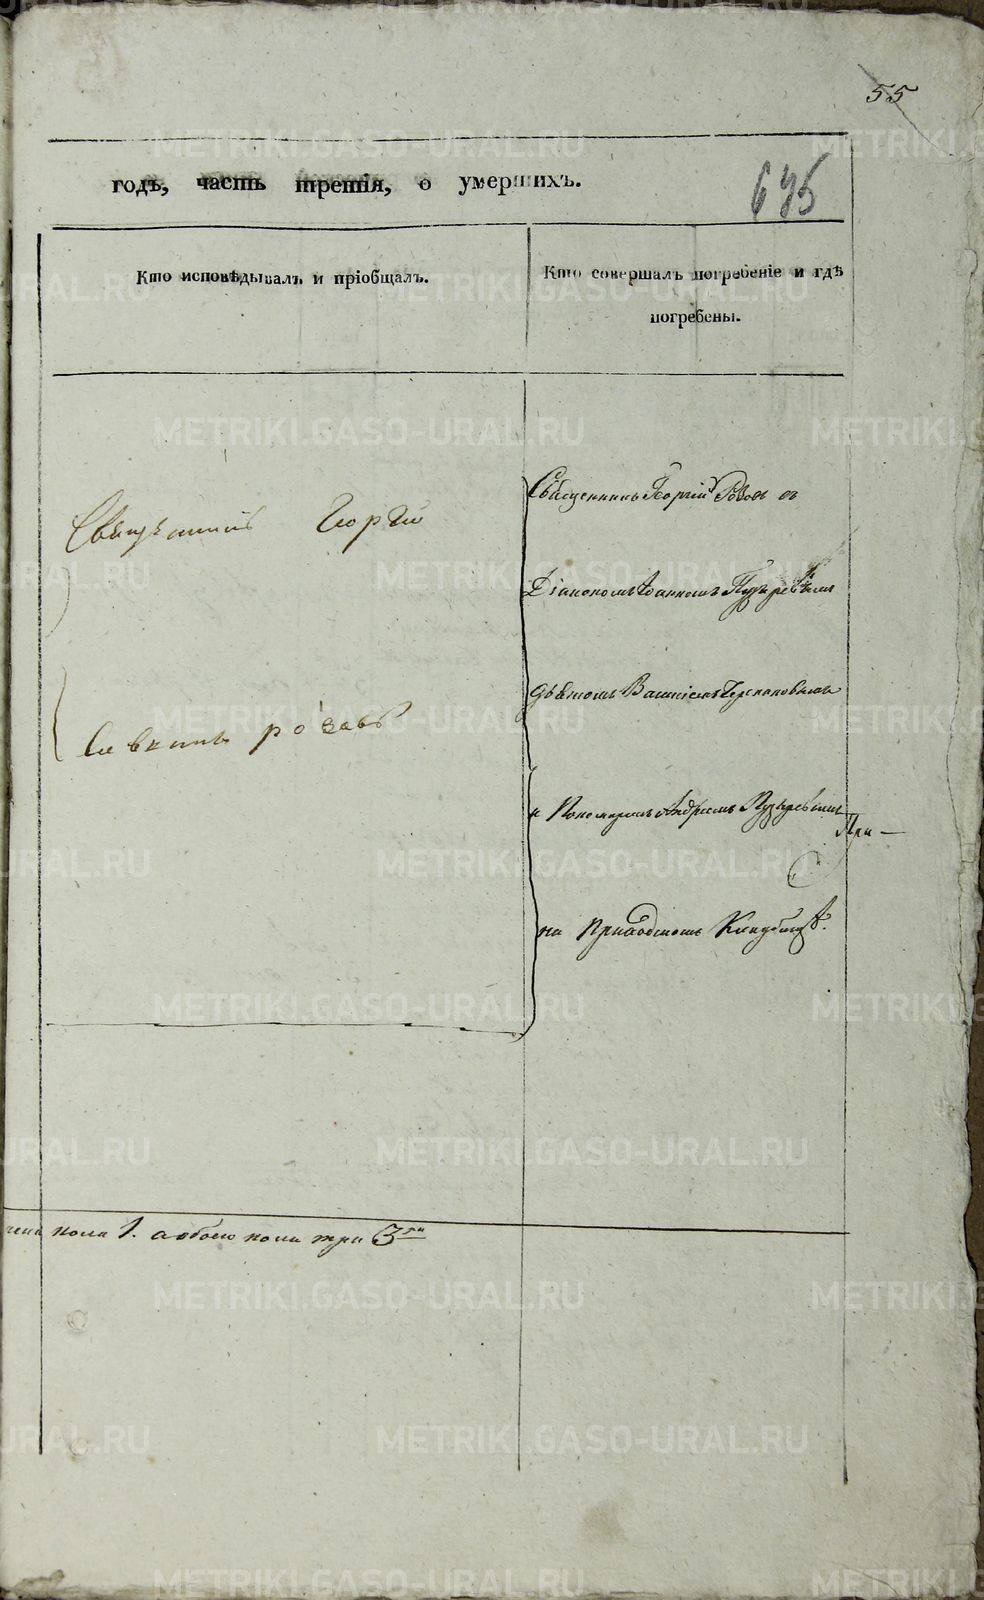 55
годъ, часть третія, о умершихъ.
695
Кто исповѣдывалъ и пріобщалъ.
Кто совершалъ погребеніе и гдѣ
погребены.
Священникъ Георгій Розовъ съ
Священникъ Георгій
Діакономъ Іоанномъ Пузыревымъ
Дьячкомъ
розовъ
и Пономаремъ Андреемъ Пузыревымъ
При—
на Приходскомъ Кладбищѣ.
пола 1. а обоего пола три 3ри
METRIKI.GASO-URAL.RU